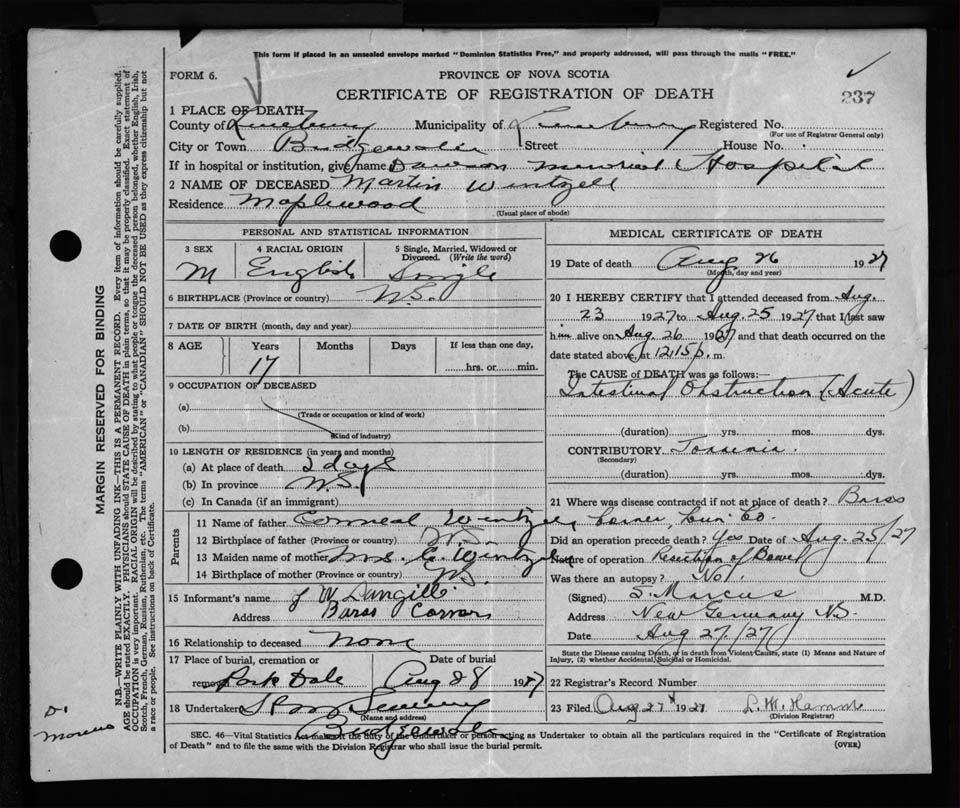 This form if placed in an unsealed envelope marked "Dominion Statistics Free," and properly addressed, will pass through the mails "FREE."
FORM 6.
PROVINCE OF NOVA SCOTIA
CERTIFICATE OF REGISTRATION OF DEATH
237
1 PLACE OF DEATH
County of Lunenburg Municipality of Lunenburg Registered No.
(For use of Registrar General only)
City or Town Bridgewater Street House No.
If in hospital or institution, give name Dawson Memorial Hospital
2 NAME OF DECEASED Martin Wintzell
Residence Maplewood
(Usual place of abode)
PERSONAL AND STATISTICAL INFORMATION
3 SEX 4 RACIAL ORIGIN 5 Single, Married, Widowed or Divorced. (Write the word)
M English Single
6 BIRTHPLACE (Province or country) N.S.
7 DATE OF BIRTH (month, day and year)
8 AGE Years Months Days If less than one day,
17 hrs. or min.
9 OCCUPATION OF DECEASED
(a)
(Trade or occupation or kind of work)
(b)
(Kind of industry)
10 LENGTH OF RESIDENCE (in years and months)
(a) At place of death 2 days
(b) In province N.S.
(c) In Canada (if an immigrant)
Parents
11 Name of father Corneal Wintzell
12 Birthplace of father (Province or country) N.S.
13 Maiden name of mother Mrs. C. Wintzell
14 Birthplace of mother (Province or country) N.S.
15 Informant's name J W Langille
Address Barss Corner
16 Relationship to deceased None
17 Place of burial, cremation or Date of burial
removal Park Dale Aug 28 1927
18 Undertaker
(Name and address)
Bridgewater
MEDICAL CERTIFICATE OF DEATH
19 Date of death Aug 26 1927
(Month, day and year)
20 I HEREBY CERTIFY that I attended deceased from Aug.
23 1927 to Aug. 25 1927 that I last saw
him alive on Aug. 26 1927 and that death occurred on the
date stated above, at 12.15 p. m.
The CAUSE of DEATH was as follows:
Intestinal Obstruction (Acute)
(duration) yrs. mos. dys.
CONTRIBUTORY Toxemia.
(Secondary)
(duration) yrs. mos. dys.
21 Where was disease contracted if not at place of death? Barss
Corner, Lun. Co.
Did an operation precede death? Yes Date of Aug. 25/27
Nature of operation Resection of Bowel
Was there an autopsy? No.
(Signed) S. Marcus M.D.
Address New Germany NS.
Date Aug 27/27
State the Disease causing Death, or in death from Violent Causes, state (1) Means and Nature of
Injury, (2) whether Accidental, Suicidal or Homicidal.
22 Registrar's Record Number
23 Filed Aug 27 1927
(Division Registrar)
SEC. 46—Vital Statistics Act makes it the duty of the Undertaker or person acting as Undertaker to obtain all the particulars required in the "Certificate of Registration
of Death" and to file the same with the Division Registrar who shall issue the burial permit.
(OVER)
MARGIN RESERVED FOR BINDING
N.B.—WRITE PLAINLY WITH UNFADING INK—THIS IS A PERMANENT RECORD. Every item of information should be carefully supplied.
AGE should be stated EXACTLY. PHYSICIANS should STATE CAUSE OF DEATH in plain terms, so that it may be properly classified. Exact statement of
OCCUPATION is very important. RACIAL ORIGIN will be described by stating to what people or tongue the deceased person belonged, whether English, Irish,
Scotch, French, German, Russian, Ruthenian, etc. The terms "AMERICAN" or "CANADIAN" SHOULD NOT BE USED as they express citizenship but not
a race or people. See instructions on back of Certificate.